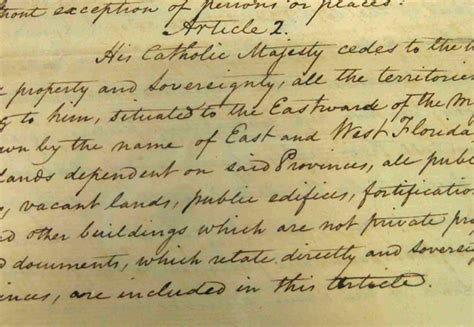 out exception of persons or places.
Article 2.
His Catholic Majesty cedes to the
property and sovereignty, all the territorie
to him, situated to the Eastward of the M
own by the name of East and West Florida
lands dependent on said Provinces, all publ
s, vacant lands, public edifices, fortificatio
nd other buildings which are not private pro
d documents, which relate directly and sovereig
inces, are included in this Article.